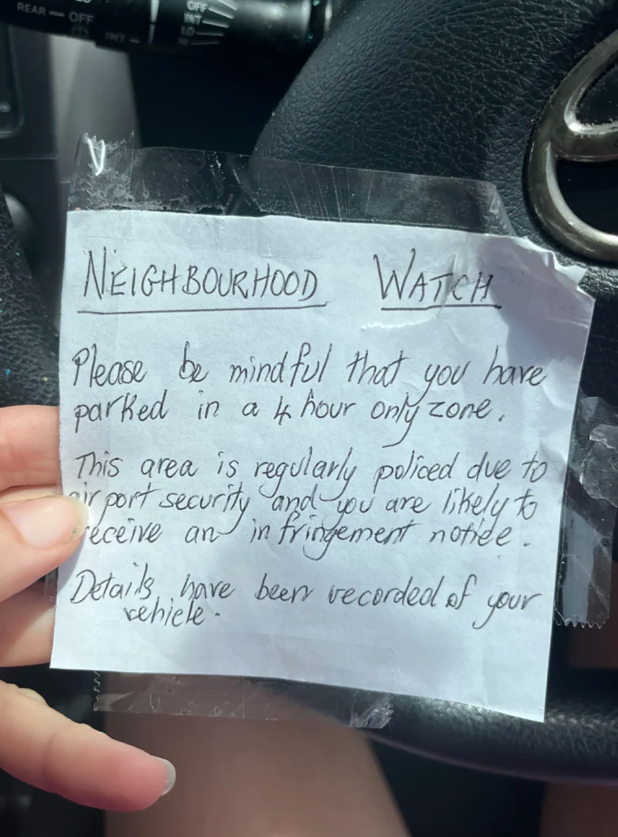 REAR — OFF
INT
OFF
INT
LO
HI
NEIGHBOURHOOD WATCH
Please be mindful that you have
parked in a 4 hour only zone.
This area is regularly policed due to
airport security and you are likely to
receive an infringement notice.
Details have been recorded of your
vehicle.